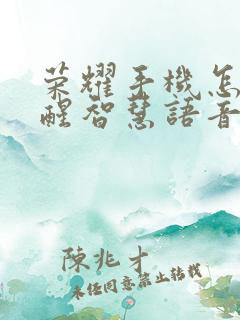 荣耀手機怎
醒智慧語音
陳兆才
未经同意禁止转载